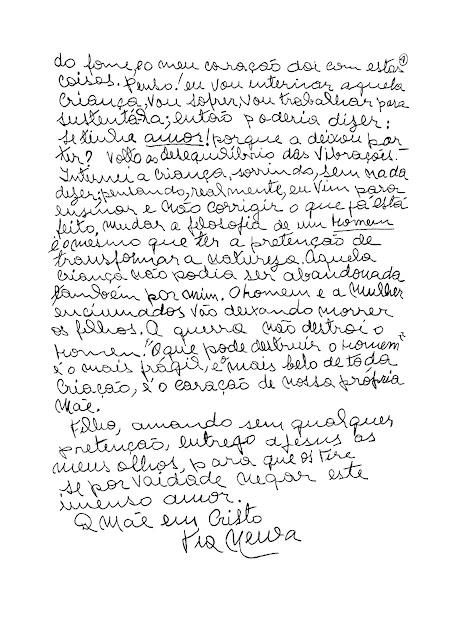 do fome, e o meu coração doi com estas 9
coisas. Penso! eu vou internar aquela
criança, vou sofrer, vou trabalhar para
sustentála; então poderia dizer:
se tinha amor! porque a deixou par
tir? Volto ao desequilíbrio das vibrações.
Internei a criança, sorrindo, sem nada
dizer, pensando, realmente, eu vim para
ensinar e não corrigir o que já está
feito, mudar a filosofia de um Homem
é o mesmo que ter a pretenção de
transformar a natureza. Aquela
criança não podia ser abandonada
também por mim. O homem e a mulher
enciumados vão deixando morrer
os filhos. A guerra não destroi o
Homem. "O que pode destruir o Homem"
é o mais frágil, e o mais belo de toda
Criação, é o coração de nossa própria
Mãe.
Filho, amando sem qualquer
pretenção, entrego a Jesus os
meus olhos, para que os tire
se por vaidade negar este
imenso amor.
A Mãe em Cristo
Tia Neiva